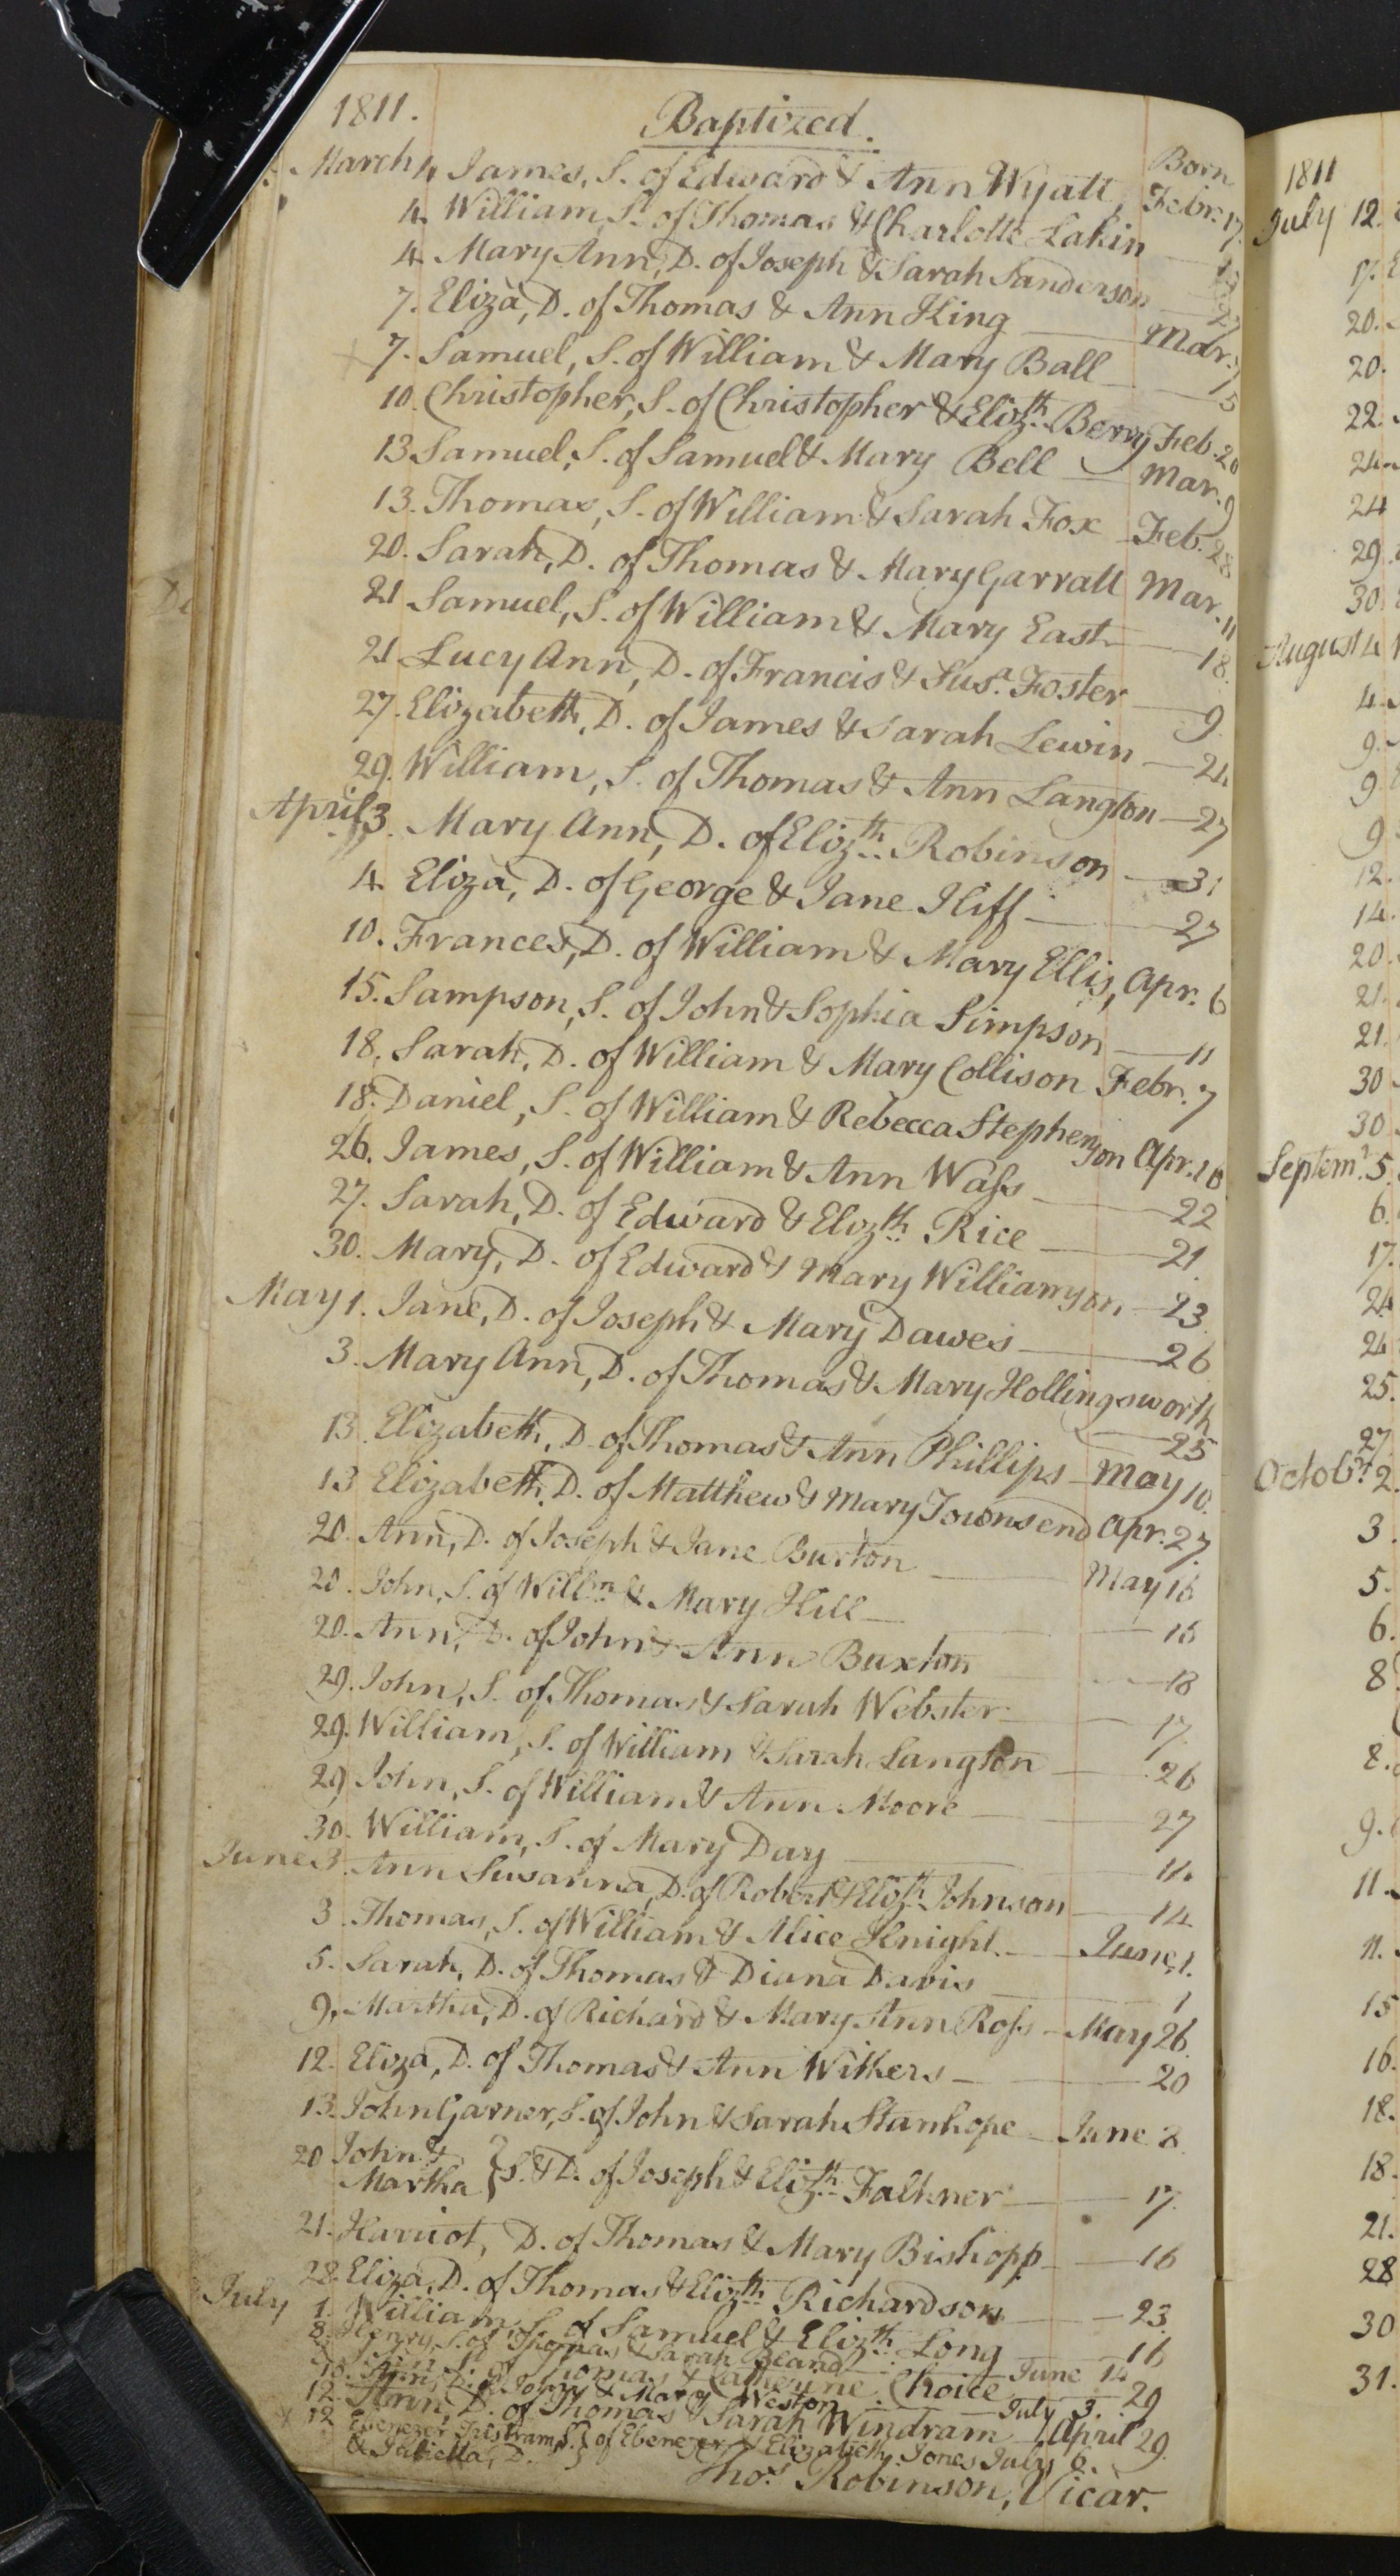 1811.
Baptized.
Born
March 4 James, S. of Edward & Ann Wyatt, Febr. 17.
4. William, S. of Thomas & Charlotte Lakin
4. Mary Ann, D. of Joseph & Sarah Sanderson 27
7. Eliza, D. of Thomas & Ann King Mar. 7
7. Samuel, S. of William & Mary Ball 5
10. Christopher, S. of Christopher & Elizth. Berry Feb. 20
13 Samuel, S. of Samuel & Mary Bell Mar. 9
13. Thomas, S. of William & Sarah Fox Feb. 28
20. Sarah, D. of Thomas & Mary Garratt Mar. 11
21 Samuel, S. of William & Mary East 18.
21 Lucy Ann, D. of Francis & Susa. Foster 9
27. Elizabeth, D. of James & Sarah Lewin 24
29. William, S. of Thomas & Ann Langton 27
April 3. Mary Ann, D. of Elizth. Robinson 31
4. Eliza, D. of George & Jane Iliff 27
10. Frances, D. of William & Mary Ellis, Apr. 6
15. Sampson, S. of John & Sophia Simpson 11
18. Sarah, D. of William & Mary Collison Febr. 7
18. Daniel, S. of William & Rebecca Stephenson Apr. 16
26. James, S. of William & Ann Wass 22
27. Sarah, D. of Edward & Elizth. Rice 21.
30. Mary, D. of Edward & Mary Williamson 23.
May 1. Jane, D. of Joseph & Mary Dawes 26
3. Mary Ann, D. of Thomas & Mary Hollingsworth
25
13. Elizabeth, D. of Thomas & Ann Phillips May 10.
13 Elizabeth, D. of Matthew & Mary Townsend Apr. 27.
20. Ann, D. of Joseph & Jane Burton May 16
20. John, S. of Willm. & Mary Hill 16
20. Ann, D. of John & Ann Buxton 18
29. John, S. of Thomas & Sarah Webster 17.
29. William, S. of William & Sarah Langton 26
29 John, S. of William & Ann Moore 27
30. William, S. of Mary Day 11.
June 3. Ann Susanna, D. of Robert & Elizth. Johnson 14
3. Thomas, S. of William & Alice Knight June, 1.
5. Sarah, D. of Thomas & Diana Davis 1
9. Martha, D. of Richard & Mary Ann Ross May 26.
12. Eliza, D. of Thomas & Ann Withers 20
13. John Garner, S. of John & Sarah Stanhope June 8
20 John &
Martha } S. & D. of Joseph & Elizth. Falkner 17.
21. Harriot, D. of Thomas & Mary Bishopp 16
28. Eliza, D. of Thomas & Elizth. Richardson 23.
July 1. William, S. of Samuel & Elizth. Long 16
8. Henry, S. of Thomas & Sarah Beand June 12
S. of Thomas & Catherine Choice 29
10. Ann, D. of John & Mary Weston July 3.
12. Ann, D. of Thomas & Sarah Windram April 29.
12 Ebenezer Tristram, S. } of Ebenezer & Elizabeth Jones July 6.
& Julietta, D.
Thos. Robinson, Vicar.
1811
July 12.
17.
20.
20.
22.
24
24
29.
30
August 4
4.
9.
9.
9
12.
14.
20.
21.
21.
30
30
Septemr. 5.
6.
17.
24
24
25.
27.
Octobr. 2.
3.
5.
6.
8
8.
9.
11.
11.
15
16.
18.
18.
21.
28
30
31.